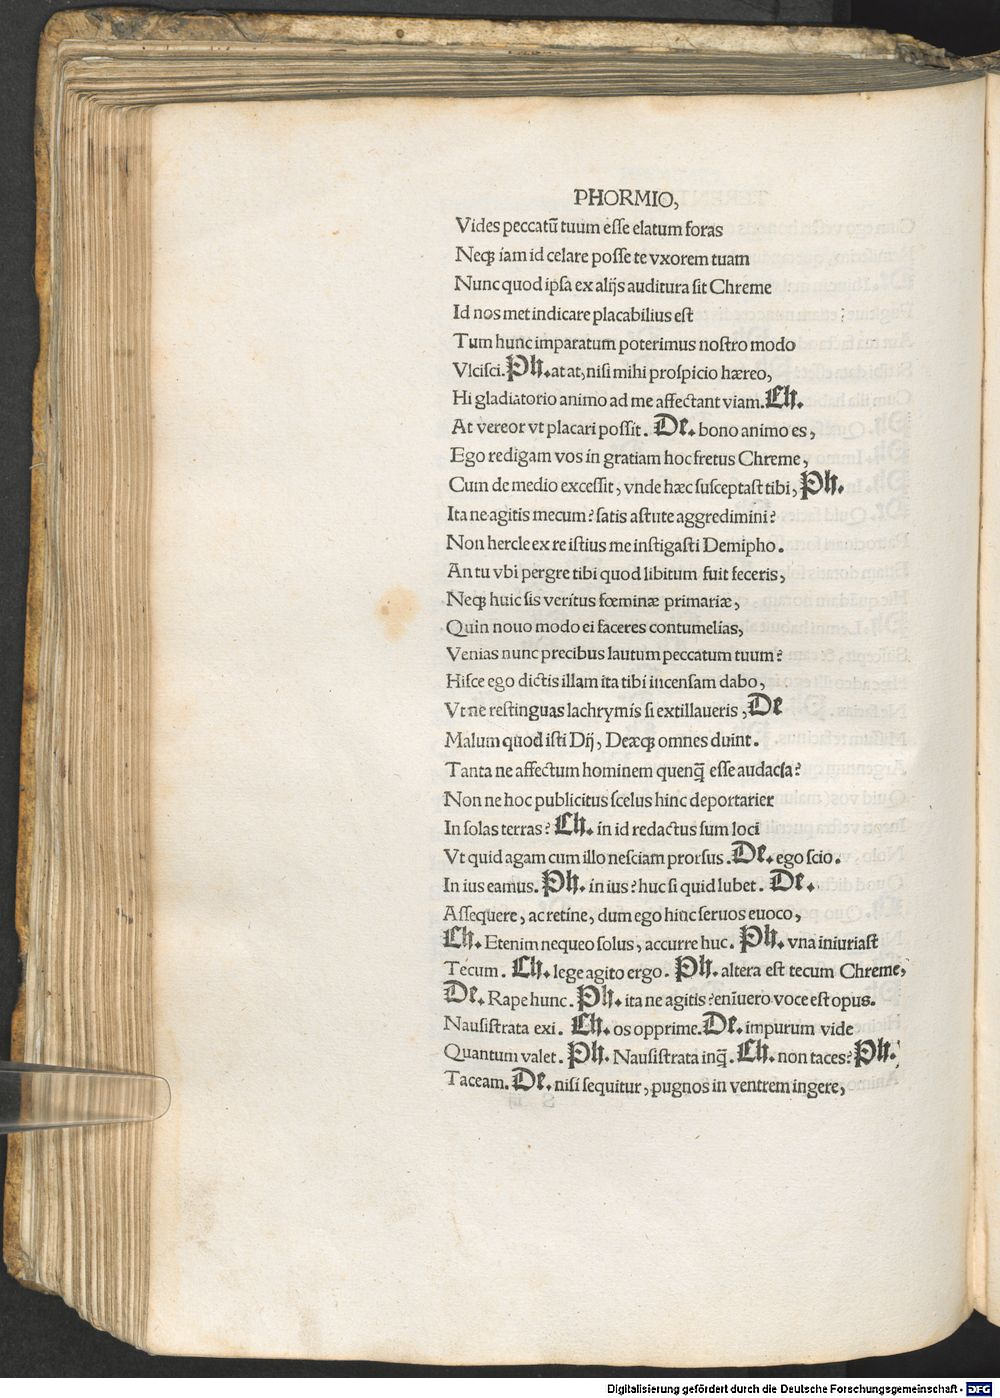 PHORMIO,
Vides peccatū tuum esse elatum foras
Neqꝫ iam id celare posse te vxorem tuam
Nunc quod ipsa ex alijs auditura sit Chreme
Id nosmet indicare placabilius est
Tum hunc imparatum poterimus nostro modo
Vlcisci. Ph. at at, nisi mihi prospicio hæreo,
Hi gladiatorio animo ad me affectant viam. Ch.
At vereor vt placari possit. De. bono animo es,
Ego redigam vos in gratiam hoc fretus Chreme,
Cum de medio excessit, vnde hæc susceptast tibi, Ph.
Ita ne agitis mecum? satis astute aggredimini?
Non hercle ex re istius me instigasti Demipho.
An tu vbi pergre tibi quod libitum fuit feceris,
Neqꝫ huic sis veritus fœminæ primariæ,
Quin nouo modo ei faceres contumelias,
Venias nunc precibus lautum peccatum tuum?
Hisce ego dictis illam ita tibi incensam dabo,
Vt ne restinguas lachrymis si extillaueris, De
Malum quod isti Dij, Deæqꝫ omnes duint.
Tanta ne affectum hominem quenq̄ esse audacia?
Non ne hoc publicitus scelus hinc deportarier
In solas terras? Ch. in id redactus sum loci
Vt quid agam cum illo nesciam prorsus. De. ego scio.
In ius eamus. Ph. in ius? huc si quid lubet. De.
Assequere, ac retine, dum ego hinc seruos euoco,
Ch. Etenim nequeo solus, accurre huc. Ph. vna iniuriast
Tecum. Ch. lege agito ergo. Ph. altera est tecum Chreme,
De. Rape hunc. Ph. ita ne agitis? enīuero voce est opus.
Nausistrata exi. Ch. os opprime. De. impurum vide
Quantum valet. Ph. Nausistrata inq̄. Ch. non taces? Ph.
Taceam. De. nisi sequitur, pugnos in ventrem ingere,
Digitalisierung gefördert durch die Deutsche Forschungsgemeinschaft - DFG